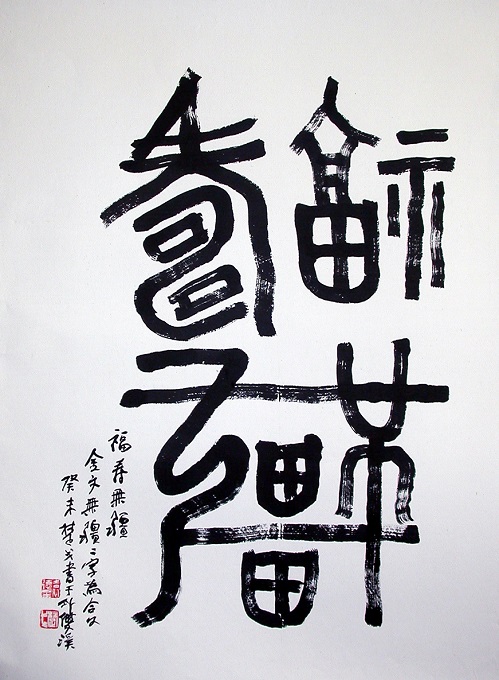 福壽
無疆
福壽無疆
金文無疆二字為合文
癸未楚戈書于外雙溪